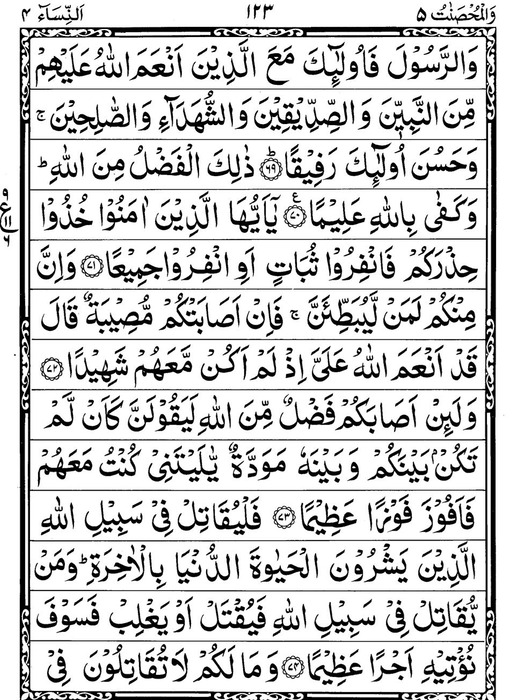 وَالْمُحْصَنٰتُ ۵ ۱۲۳ اَلنِّسَآء ۴
وَالرَّسُوْلَ فَاُولٰٓئِكَ مَعَ الَّذِيْنَ اَنْعَمَ اللّٰهُ عَلَيْهِمْ
مِّنَ النَّبِيّٖنَ وَالصِّدِّيْقِيْنَ وَالشُّهَدَآءِ وَالصّٰلِحِيْنَ ۚ
وَحَسُنَ اُولٰٓئِكَ رَفِيْقًا ؕ۶۹ ذٰلِكَ الْفَضْلُ مِنَ اللّٰهِ ؕ
وَكَفٰى بِاللّٰهِ عَلِيْمًا ۷۰ ع يٰۤاَيُّهَا الَّذِيْنَ اٰمَنُوْا خُذُوْا
حِذْرَكُمْ فَانْفِرُوْا ثُبَاتٍ اَوِ انْفِرُوْا جَمِيْعًا ۷۱ وَاِنَّ
مِنْكُمْ لَمَنْ لَّيُبَطِّئَنَّ ۚ فَاِنْ اَصَابَتْكُمْ مُّصِيْبَةٌ قَالَ
قَدْ اَنْعَمَ اللّٰهُ عَلَيَّ اِذْ لَمْ اَكُنْ مَّعَهُمْ شَهِيْدًا ۷۲
وَلَئِنْ اَصَابَكُمْ فَضْلٌ مِّنَ اللّٰهِ لَيَقُوْلَنَّ كَاَنْ لَّمْ
تَكُنْۢ بَيْنَكُمْ وَبَيْنَهٗ مَوَدَّةٌ يّٰلَيْتَنِيْ كُنْتُ مَعَهُمْ
فَاَفُوْزَ فَوْزًا عَظِيْمًا ۷۳ فَلْيُقَاتِلْ فِيْ سَبِيْلِ اللّٰهِ
الَّذِيْنَ يَشْرُوْنَ الْحَيٰوةَ الدُّنْيَا بِالْاٰخِرَةِ ؕ وَمَنْ
يُّقَاتِلْ فِيْ سَبِيْلِ اللّٰهِ فَيُقْتَلْ اَوْ يَغْلِبْ فَسَوْفَ
نُؤْتِيْهِ اَجْرًا عَظِيْمًا ۷۴ وَمَا لَكُمْ لَا تُقَاتِلُوْنَ فِيْ
۹
ع ۱۱
۶